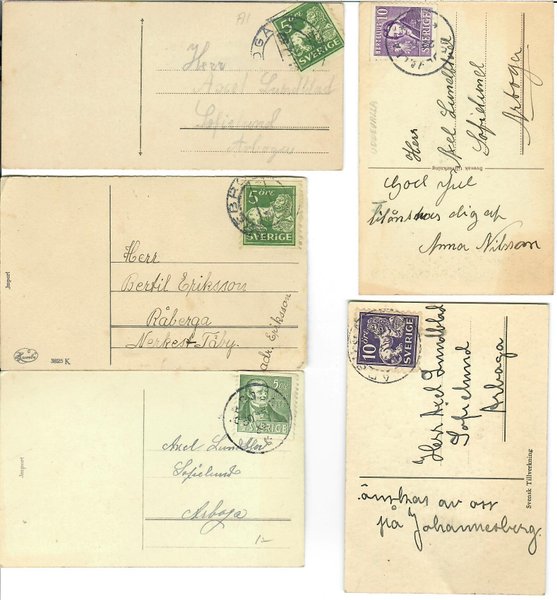 A11
5 ÖRE
SVERIGE
Herr
Axel Lundblad
Sofielund
Arboga
5 ÖRE
SVERIGE
Herr
Bertil Eriksson
Råberga
Nerkes-Täby
Eriksson
Import
38825 K
5 ÖRE
SVERIGE
Axel Lundblad
Sofielund
Arboga
Import
1-
10
SVERIGE
Herr
Axel Lundblad
Sofielund
Arboga
Svensk Tillverkning
God Jul
tillönskas dig af
Anna Nilsson
10 ÖRE
SVERIGE
Herr Axel Lundblad
Sofielund
Arboga
Svensk Tillverkning
önskas av oss
på Johannesberg.